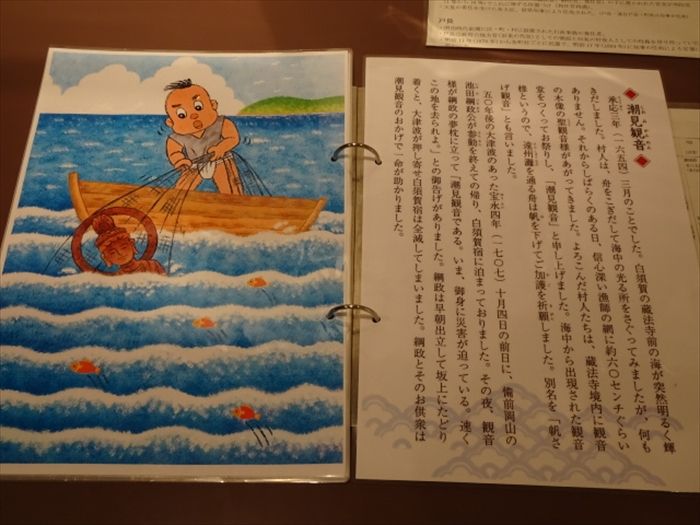 潮見観音
承応三年（一六五四）三月のことでした。白須賀の蔵法寺前の海が突然明るく輝
きだしました。村人は、舟をこぎだして海中の光る所をさぐってみましたが、何も
ありません。それからしばらくのある日、信心深い漁師の網に約六〇センチぐらい
の木像の聖観音様があがってきました。よろこんだ村人たちは、蔵法寺境内に観音
堂をつくってお祭りし、「潮見観音」と申し上げました。海中から出現された観音
様というので、遠州灘を通る舟は帆を下げてご加護を祈願しました。別名を「帆さ
げ観音」とも言いました。
五〇年後の大津波のあった宝永四年（一七〇七）十月四日の前日に、備前岡山の
池田綱政公が参勤を終えての帰り、白須賀宿に泊まっておりました。その夜、観音
様が綱政の夢枕に立って「潮見観音である。いま、御身に災害が迫っている。速く
この地を去られよ。」との御告げがありました。綱政は早朝出立して坂上にたどり
着くと、大津波が押し寄せ白須賀宿は全滅してしまいました。綱政とそのお供衆は
潮見観音のおかげで一命が助かりました。